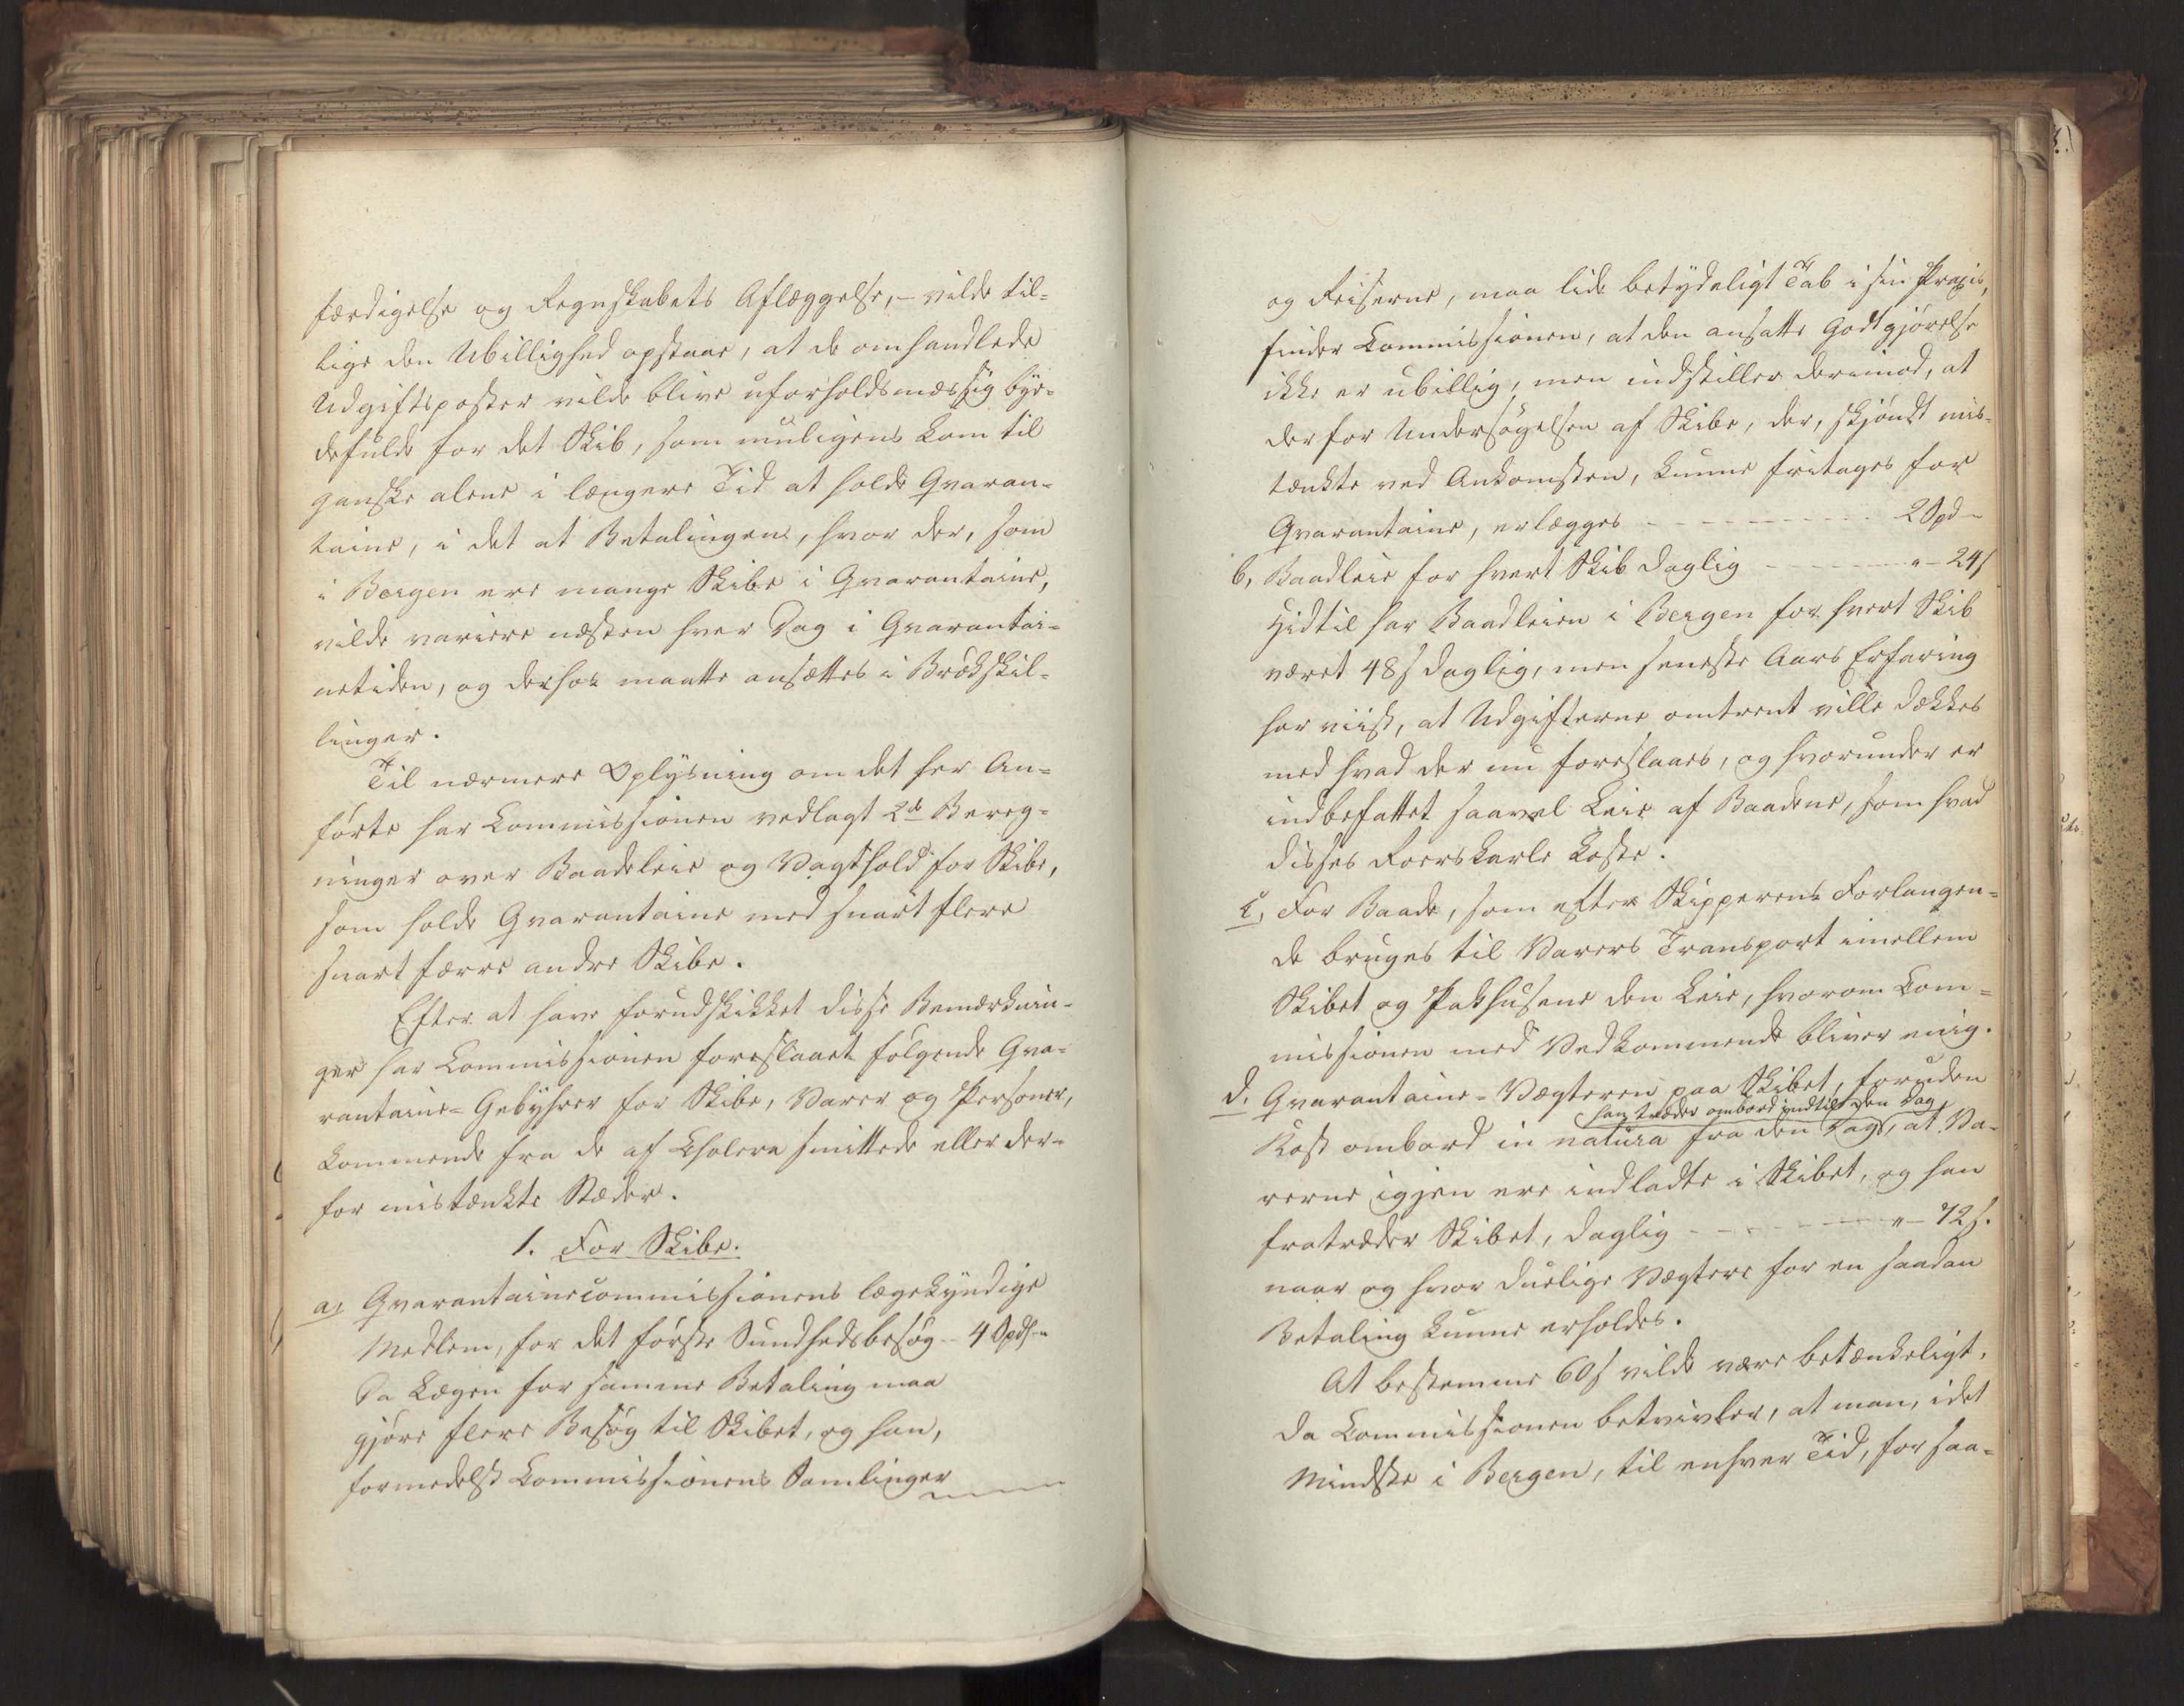 færdigelse og Regnskabets Aflæggelse, – vilde til-
lige den Ubillighed opstaae, at de omhandlede
Udgiftsposter vilde blive uforholdsmæssig byr-
defulde for det Skib, som muligens kom til
ganske alene i længere Tid at holde Qvaran-
taine, i det at Betalingen, hvor der, som
i Bergen ere mange Skibe i Qvarantaine,
vilde variere næsten hver Dag i Qvarantai-
netiden, og derhos maatte ansættes i Brøkskil-
linger.
Til nærmere Oplysning om det her An-
førte har Commissionen vedlagt 2de Bereg-
ninger over Baadeleie og Vagthold for Skibe,
som holde Qvarantaine med snart flere
snart færre andre Skibe.
Efter at have forudskikket disse Bemærknin-
ger har Commissionen foreslaaet følgende Qva-
rantaine-Gebyhrer for Skibe, Varer og Personer,
kommende fra de af Cholera smittede eller der-
for mistænkte Stæder.
1. For Skibe.
a, Qvarantainecommissionens lægekyndige
Medlem, for det første Sundhedsbesøg - 4 Spd -
Da Lægen for samme Betaling maa
gjøre flere Besøg til Skibet, og han,
formedelst Commissionens Samlinger
og Reiserne, maa lide betydeligt Tab i sin Praxis,
finder Commissionen, at den ansatte Godtgjørelse
ikke er ubillig, men indstiller derimod, at
der for Undersøgelsen af Skibe, der, skjøndt mis-
tænkte ved Ankomsten, kunne fritages for
Qvarantaine, erlægges - - - - - - 2 Spd -
b, Baadleie for hvert Skib daglig - - - - - " - 24 s
Hidtil har Baadleien i Bergen for hvert Skib
været 48 s daglig, men seneste Aars Erfaring
har viist, at Udgifterne omtrent ville dækkes
med hvad der nu foreslaaes, og hvorunder er
indbefattet saavel Leie af Baadene, som hvad
disses Roerskarle koste.
c, For Baade, som efter Skipperens Forlangen-
de bruges til Varers Transport imellem
Skibet og Pakhusene den Leie, hvorom Com-
missionen med Vedkommende bliver enig.
d. Qvarantaine-Vægteren paa Skibet, foruden
han træder ombord indtil den Dag,
Kost ombord in natura fra den Dag, at Va-
rerne igjen ere indladte i Skibet, og han
fratræder Skibet, daglig - - - - - " - 72 s.
naar og hvor duelige Vægtere for en saadan
Betaling kunne erholdes.
At bestemme 60 s vilde være betænkeligt,
da Commissionen betvivler, at man, idet
Mindste i Bergen, til enhver Tid, for saa-